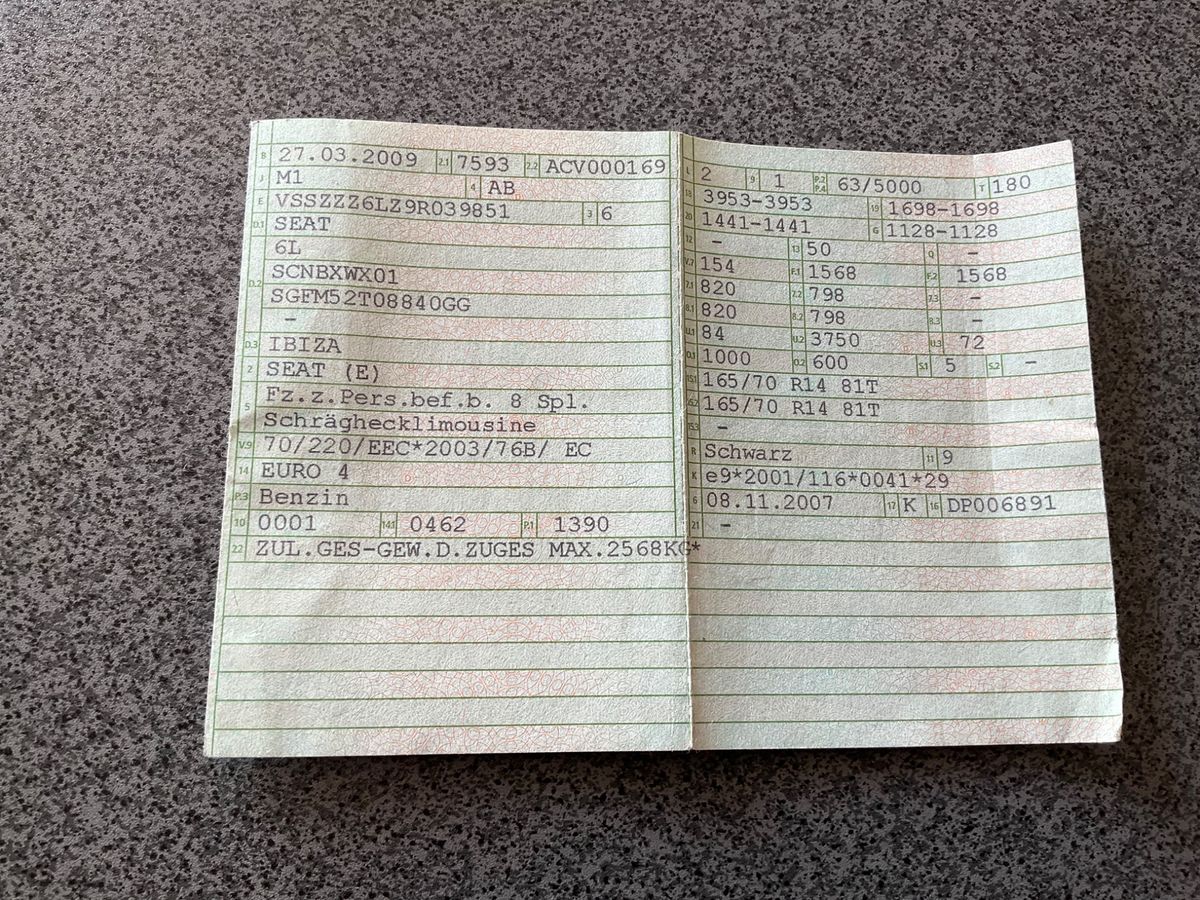 B 27.03.2009 2.1 7593 2.2 ACV000169
J M1 4 AB
E VSSZZZ6LZ9R039851 3 6
D.1 SEAT
6L
D.2 SCNBXWX01
SGFM52T08840GG
-
D.3 IBIZA
2 SEAT (E)
5 Fz.z.Pers.bef.b. 8 Spl.
Schräghecklimousine
V.9 70/220/EEC*2003/76B/ EC
14 EURO 4
P.3 Benzin
10 0001 14.1 0462 P.1 1390
22 ZUL.GES-GEW.D.ZUGES MAX.2568KG*
L 2 9 1 P.2 P.4 63/5000 T 180
18 3953-3953 19 1698-1698
20 1441-1441 G 1128-1128
12 - 13 50 Q -
V.7 154 F.1 1568 F.2 1568
7.1 820 7.2 798 7.3 -
8.1 820 8.2 798 8.3 -
U.1 84 U.2 3750 U.3 72
O.1 1000 O.2 600 S.1 5 S.2 -
15.1 165/70 R14 81T
15.2 165/70 R14 81T
15.3 -
R Schwarz 11 9
K e9*2001/116*0041*29
6 08.11.2007 17 K 16 DP006891
21 -